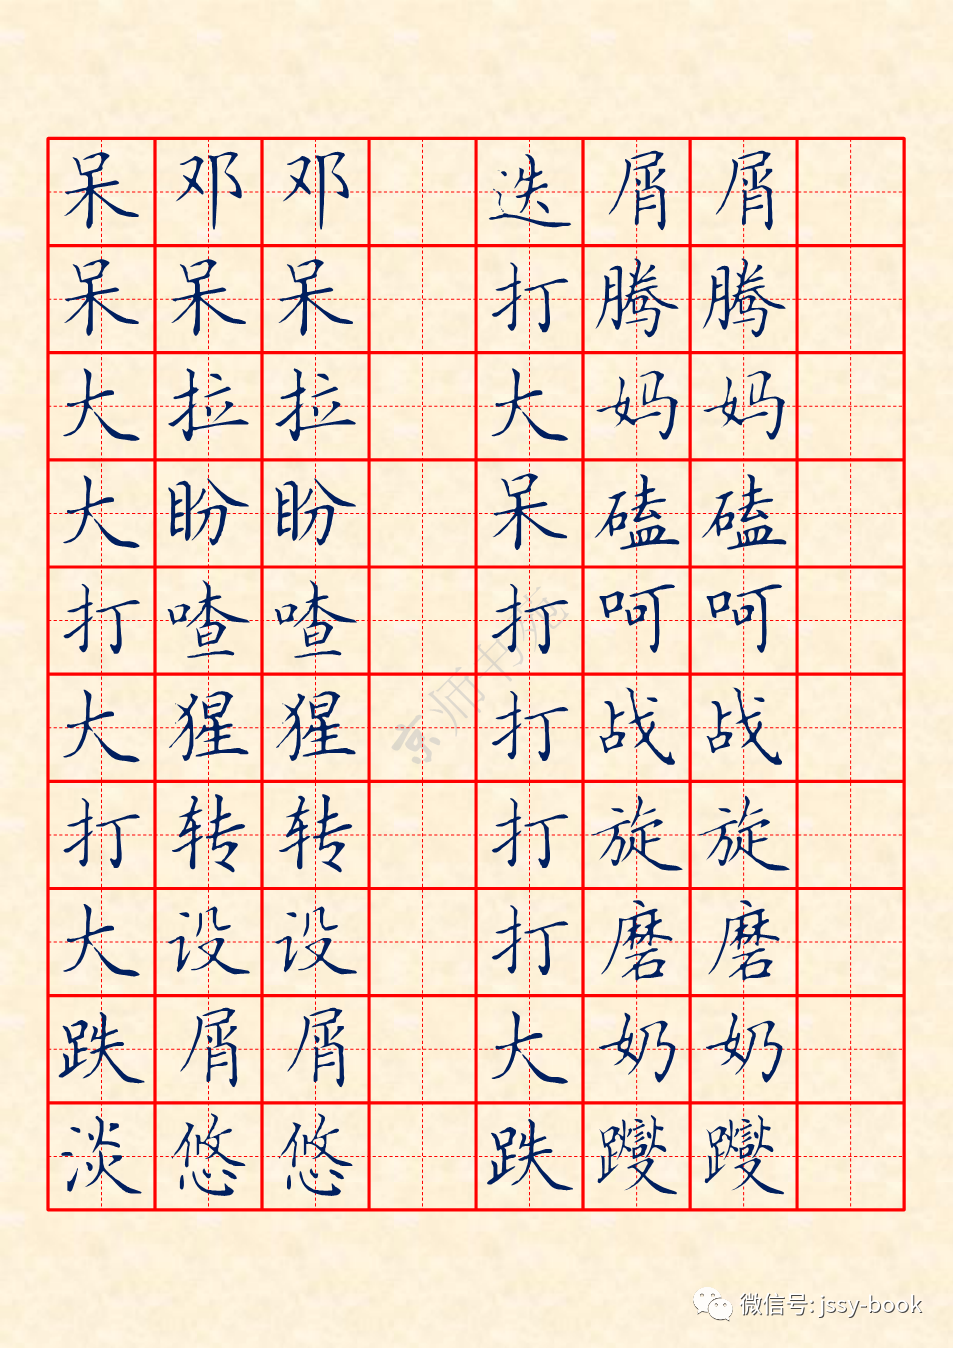 呆邓邓 迭屑屑
呆呆呆 打腾腾
大拉拉 大妈妈
大盼盼 呆磕磕
打喳喳 打呵呵
大猩猩 打战战
打转转 打旋旋
大设设 打磨磨
跌屑屑 大奶奶
淡悠悠 跌躞躞
京师书苑
微信号: jssy-book